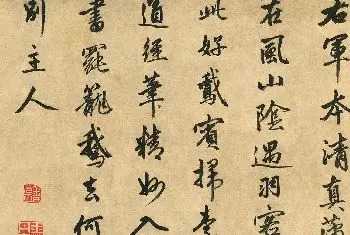 右軍本清真
在風山陰遇羽客
此好鵞賓掃
道經筆精妙入
書罷籠鵞去何
別主人